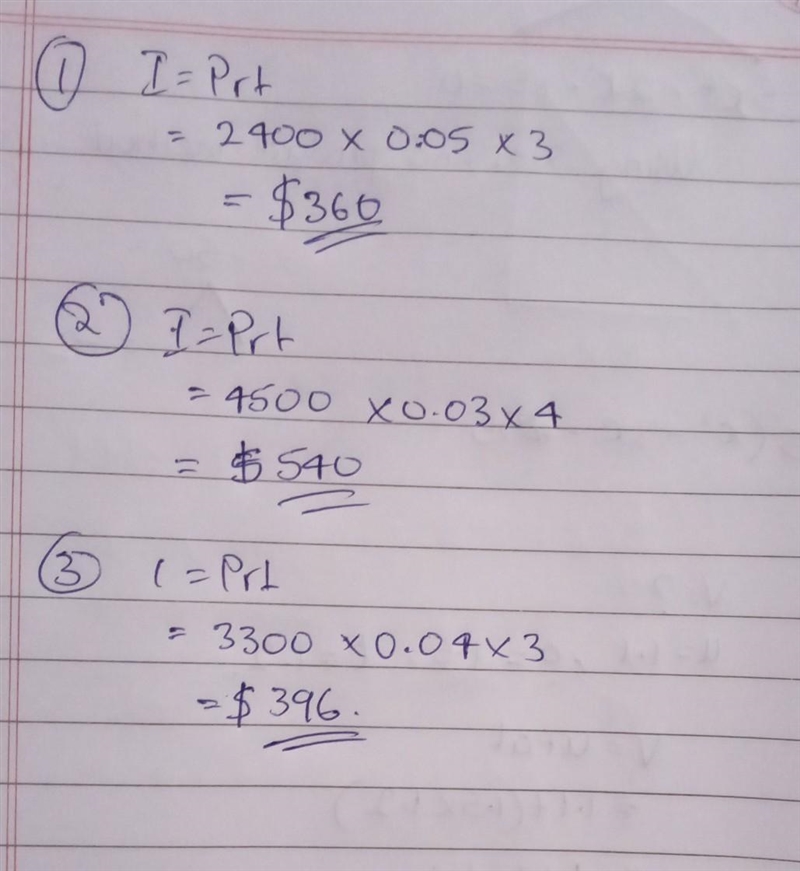 ① I = Prt
= 2400 x 0.05 x 3
= $360
② I = Prt
= 4500 x 0.03 x 4
= $540
③ I = Prt
= 3300 x 0.04 x 3
= $396.